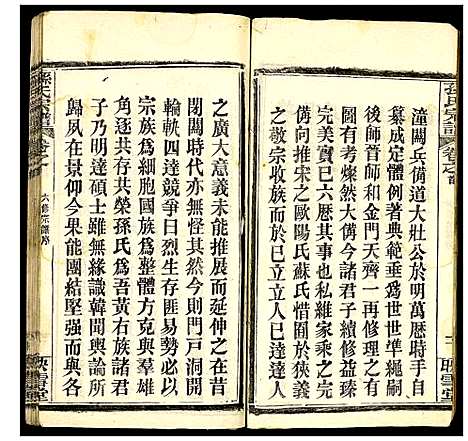 孫氏宗譜
卷之首
映雪堂
潼關兵備道大壯公於明萬曆時手自
纂成定體例著典範垂為世世準繩嗣
後師晉師和金門天齊一再修理之有
條不紊粲然大備今諸君子續修益臻
完美實已六曆其事也私維家乘之完
備向推宋之歐陽氏蘇氏惜囿於狹義
之敬宗收族于於已立立人已達達人
之廣大意義未能推展而延伸之在昔
閉關時代亦無怪其然今則門戶洞開
輪軼四達競爭日烈生存匪易勢必以
宗族為單位化小我為整體方克與羣雄
角逐共存共榮孫氏為吾黃右族諸君
子乃明達碩士雖無緣識韓聞輿論所
歸夙在景仰今果能團結堅强而與各
孫氏宗譜
卷之首
六修宗譜序
映雪堂